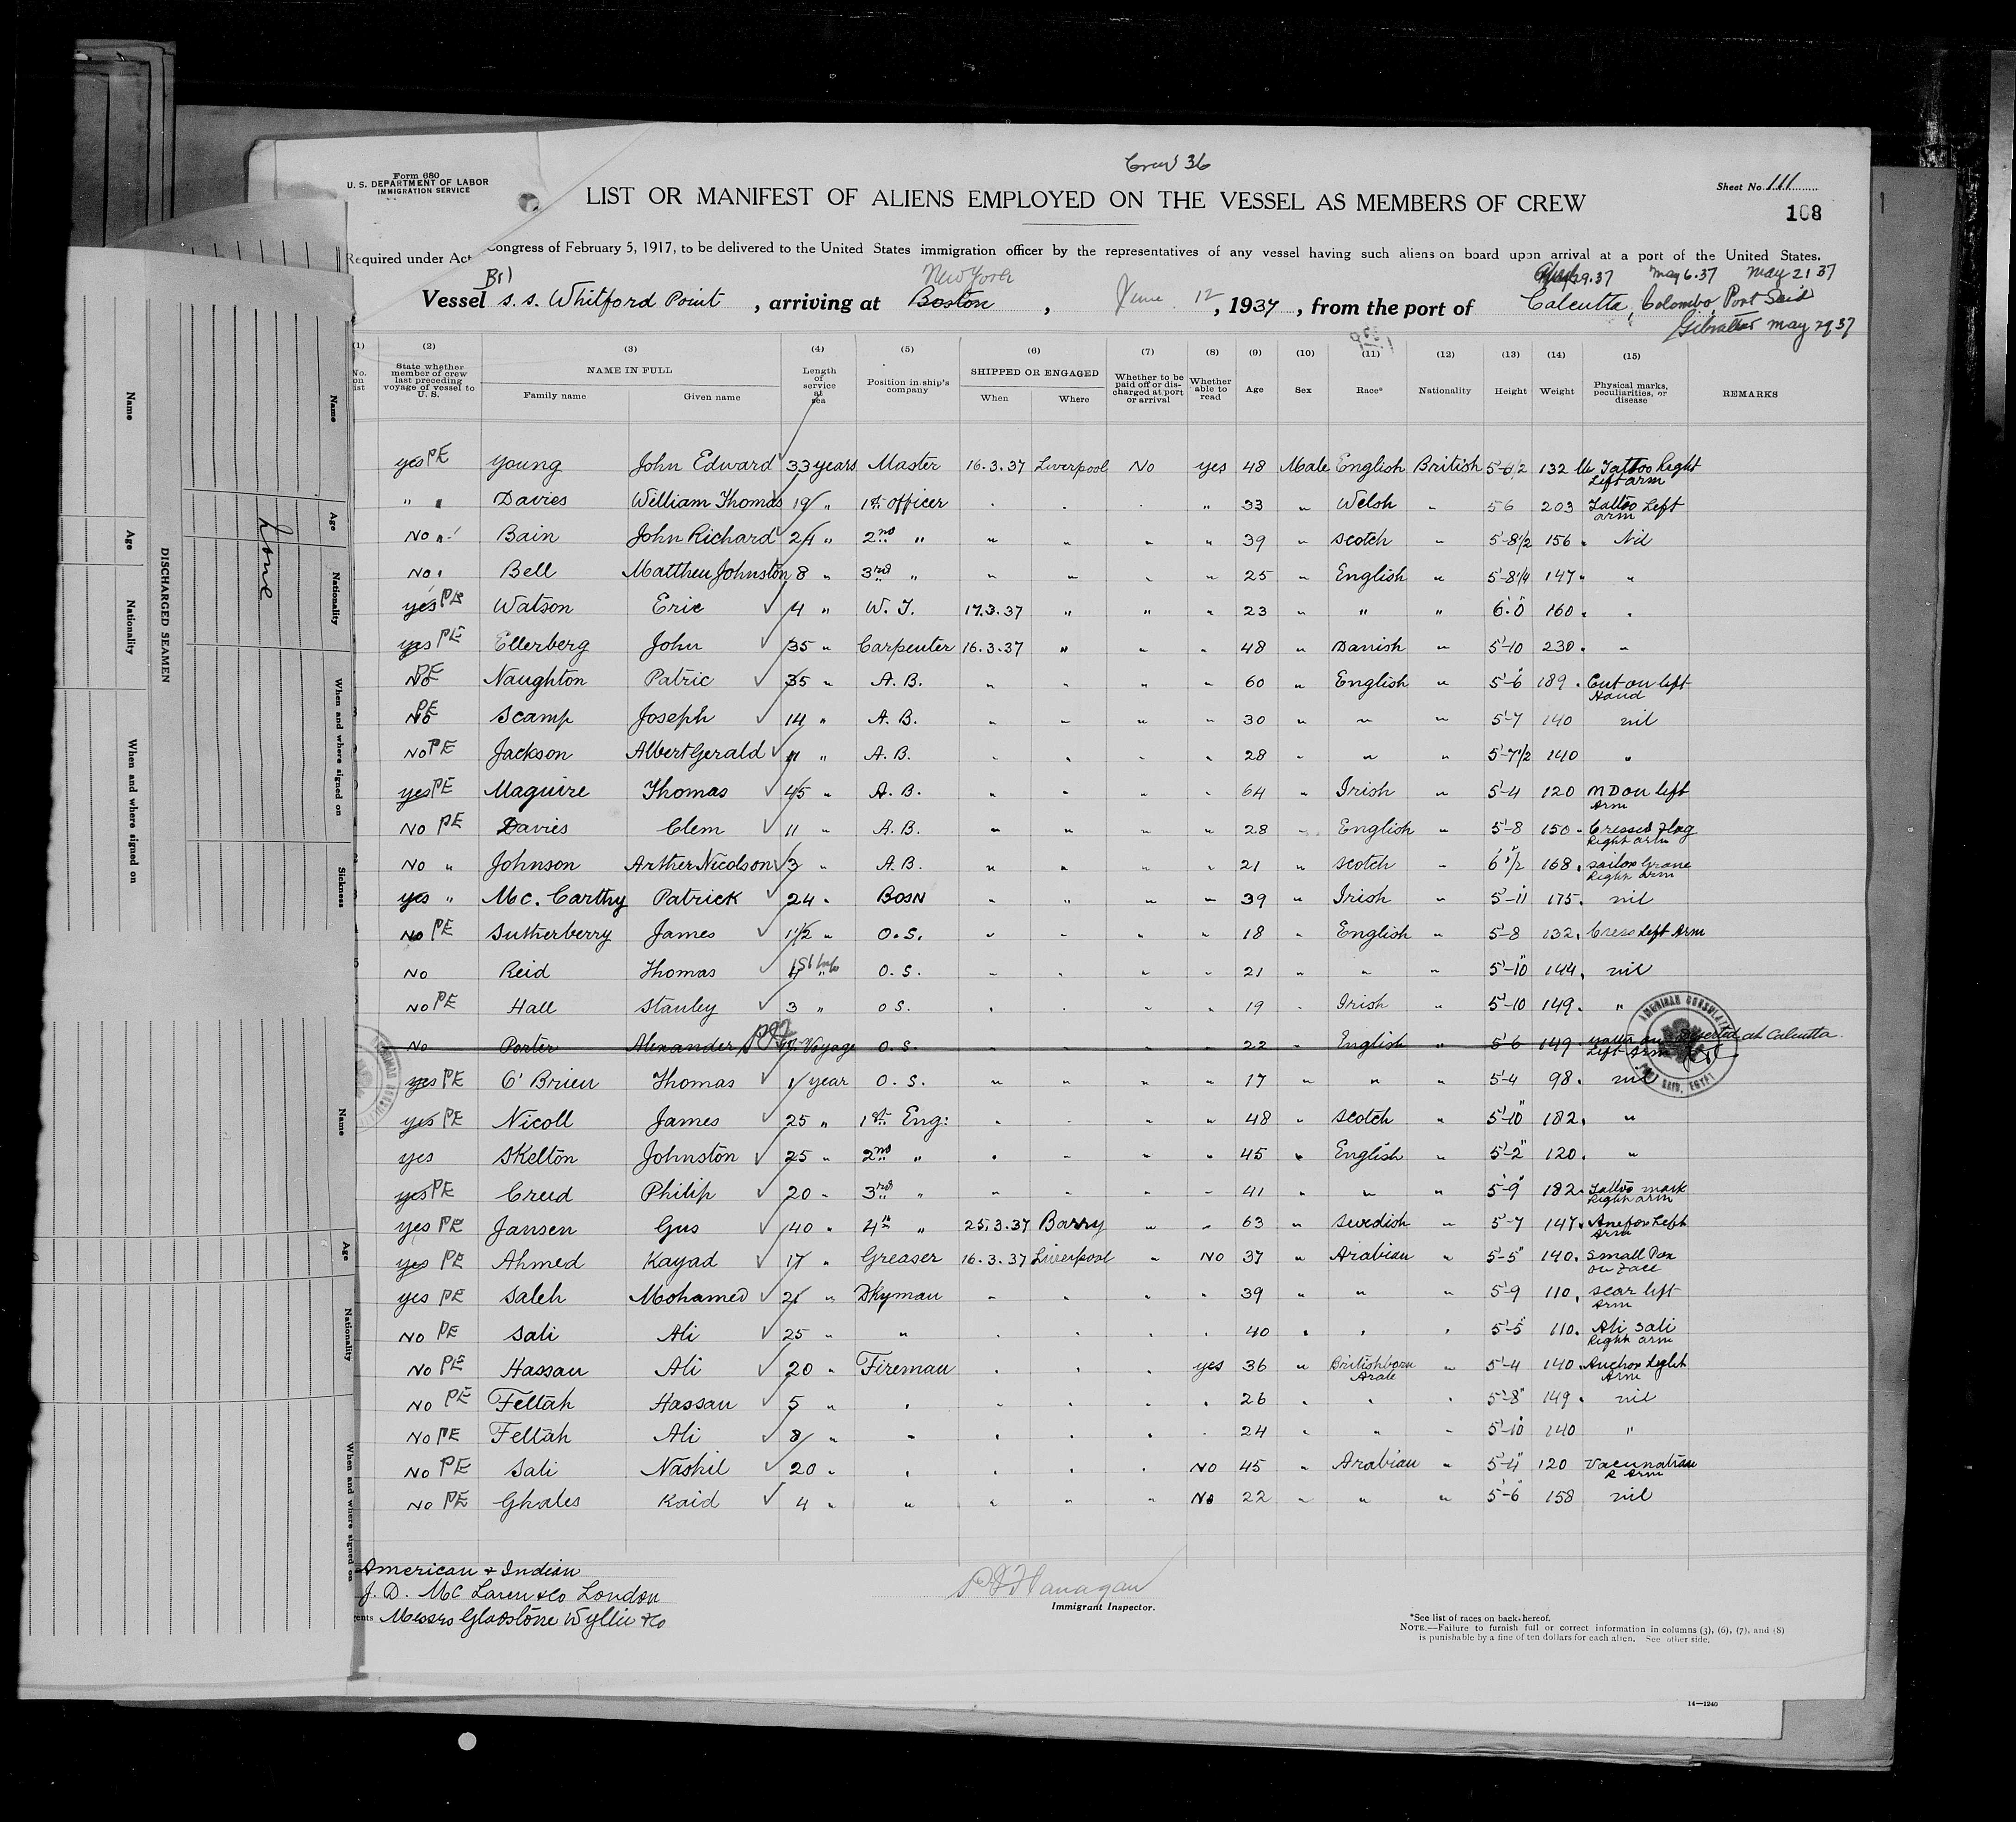 Crew 36
Form 680
U. S. DEPARTMENT OF LABOR
IMMIGRATION SERVICE
LIST OR MANIFEST OF ALIENS EMPLOYED ON THE VESSEL AS MEMBERS OF CREW
Sheet No. 111
108
Required under Act Congress of February 5, 1917, to be delivered to the United States immigration officer by the representatives of any vessel having such aliens on board upon arrival at a port of the United States.
Br New York 29.37 May 6.37 May 21 37
Vessel S. S. Whitford Point, arriving at Boston, June 12, 1937, from the port of Calcutta, Colombo, Port Said
Gibraltar May 29 37
(1) (2) (3) (4) (5) (6) (7) (8) (9) (10) (11) (12) (13) (14) (15)
No. on list State whether member of crew last preceding voyage of vessel to U. S. NAME IN FULL Family name Given name Length of service at sea Position in ship's company SHIPPED OR ENGAGED When Where Whether to be paid off or discharged at port or arrival Whether able to read Age Sex Race* Nationality Height Weight Physical marks, peculiarities, or disease REMARKS
yes PE Young John Edward 33 years Master 16.3.37 Liverpool No yes 48 Male English British 132 lbs Tattoo Right Left arm
" " Davies William Thomas 19 " 1st officer . . . " 33 " Welsh " 5 6 203 Tattoo Left arm
No " Bain John Richard 24 " 2nd " " " " " 39 " Scotch " 5-8 1/2 156 " Nil
No " Bell Matthew Johnston 8 " 3rd " " " " " 25 " English " 5-8 1/4 147 " "
yes PE Watson Eric 4 " W. T. 17.3.37 " " " 23 " " " 6.0 160 " "
yes PE Ellerberg John 35 " Carpenter 16.3.37 " " " 48 " Danish " 5-10 230 " "
No PE Naughton Patric 35 " A. B. " " " " 60 " English " 5-6 189 " Cut on left Hand
No PE Scamp Joseph 14 " A. B. " " " " 30 " " " 5-7 140 nil
No PE Jackson Albert Gerald 11 " A. B. " " " " 28 " " " 5-7 1/2 140 "
yes PE Maguire Thomas 45 " A. B. " " " " 64 " Irish " 5-4 120 M D on left Arm
No PE Davies Clem 11 " A. B. " " " " 28 " English " 5-8 150 " Crossed Flag Right arm
No " Johnson Arther Nicolson 3 " A. B. " " " " 21 " Scotch " 6 1/2 168 " Sailor Grave Right Arm
yes " Mc. Carthy Patrick 24 " BOSN " " " " 39 " Irish " 5-11 175 " nil
No PE Sutherberry James 1 1/2 " O. S. " " " " 18 " English " 5-8 132 " Cross Left Arm
No Reid Thomas O. S. " " " " 21 " " " 5-10 144 " nil
No PE Hall Stanley 3 " O S. " " " " 19 " Irish " 5-10 149 " "
No Porter Alexander 1st Voyage O. S. 22 English " 5-6 149 Left Arm Deserted at Calcutta
yes PE O'Brien Thomas 1 year O. S. " " " " 17 " " " 5-4 98 " nil
yes PE Nicoll James 25 " 1st Eng: " " " " 48 " Scotch " 5-10 182 " "
yes Skelton Johnston 25 " 2nd " " " " " 45 " English " 5-2 120 " "
yes PE Creed Philip 20 " 3rd " " " " " 41 " " " 5-9 182 " Tattoo mark Right arm
yes PE Jansen Gus 40 " 4th " 25.3.37 Barry " " 63 " Swedish " 5-7 147 " Left Arm
yes PE Ahmed Kayad 17 " Greaser 16.3.37 Liverpool " No 37 " Arabian " 5-5 140 " Small Pox on Face
yes PE Saleh Mohamed 21 " Dkyman " " " " 39 " " " 5-9 110 " Scar left Arm
No PE Sali Ali 25 " " " " " " 40 " " " 5-5 110 " Ali Sali Right arm
No PE Hassan Ali 20 " Fireman " " " yes 36 " British born Arab " 5-4 140 " Anchor Right Arm
No PE Fettah Hassan 5 " " " " " " 26 " " " 5-8 149 " nil
No PE Fettah Ali 8 " " " " " " 24 " " " 5-10 140 "
No PE Sali Nashil 20 " " " " " No 45 " Arabian " 5-4 120 Vaccination R Arm
No PE Ghales Kaid 4 " " " " " No 22 " " " 5-6 158 nil
AMERICAN CONSULATE
PORT SAID, EGYPT
American & Indian
J. D. Mc Laren & Co London
Messrs Gladstone Wyllie & Co
P J Flanagan
Immigrant Inspector.
*See list of races on back hereof.
NOTE.—Failure to furnish full or correct information in columns (3), (6), (7), and (8)
is punishable by a fine of ten dollars for each alien. See other side.
14—1240
DISCHARGED SEAMEN
Name
Age
Nationality
When and where signed on
Name
Age
Nationality
When and where signed on
Sickness
Name
Age
Nationality
When and where signed on